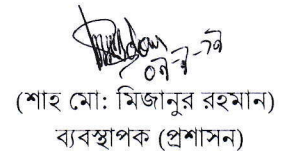 (শাহ মো: মিজানুর রহমান)
ব্যবস্থাপক (প্রশাসন)